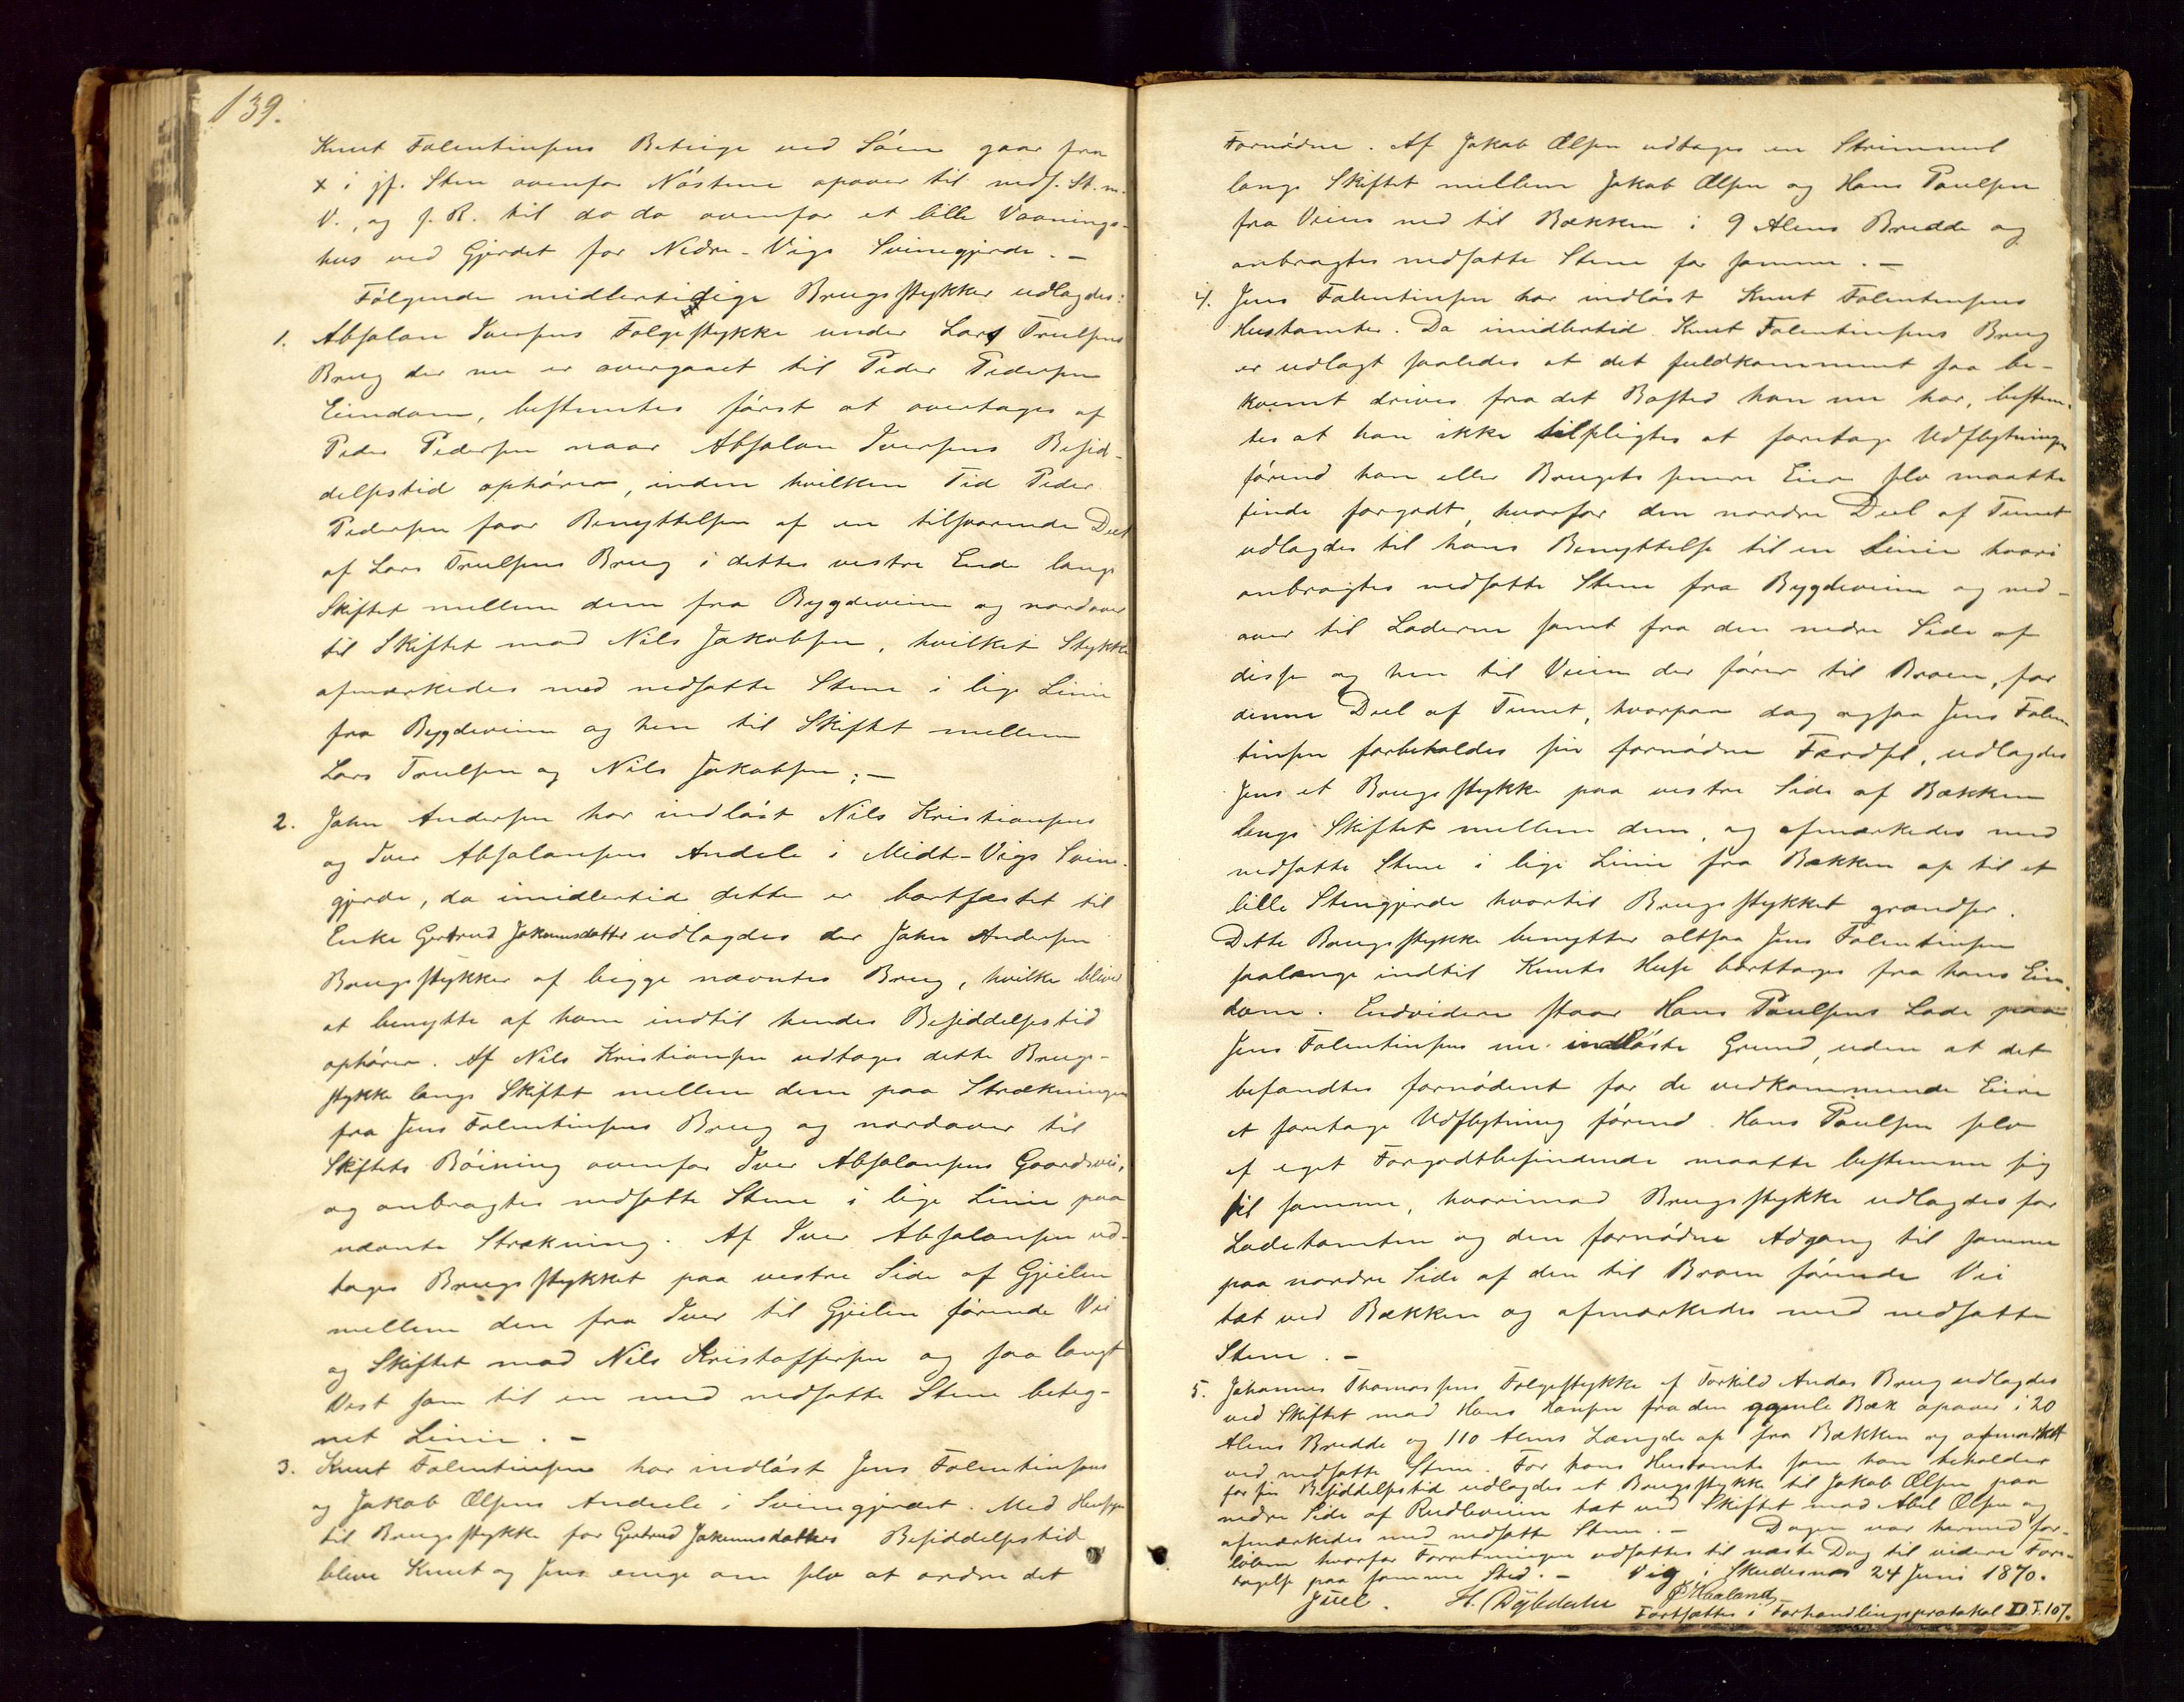 139.
Knut Falentinsens Beteige ved Söen gaar fra
x i jf. Sten ovenfor Nöstene opover til neds. St. m.
V., og f. R. til do do ovenfor et lille Vaanings-
hus ved Gjerdet for Nedre-Vigs Svinegjerde. -
Fölgende midlertidige Brugsstykker udlagdes:
1. Absalon Iversens Folgestykke under Lars Trulsens
Brug der nu er overgaaet til Peder Pedersens
Eiendom, bestemtes först at overtages af
Peder Pedersen naar Absalon Iversens Besid-
delsestid ophörer, inden hvilken Tid Peder
Pedersen faar Benyttelsen af en tilsvarende Deel
af Lars Trulsens Brug i dettes vestre Ende langs
Skiftet mellem dem fra Bygdeveien og nordover
til Skiftet mod Nils Jakobsen, hvilket Stykke
afmærkedes med nedsatte Stene i lige Linie
fra Bygdeveien og hen til Skiftet mellem
Lars Trulsen og Nils Jakobsen; -
2. John Andersen har indlöst Nils Kristiansens
og Iver Absalonsens Andele i Midt-Vigs Svine-
gjerde, da imidlertid dette er bortfæstet til
Enke Gertrud Jokumsdatter udlagdes der John Andersen
Brugsstykker af begge nævntes Brug, hvilke bliver
at benytte af ham indtil hendes Besiddelsestid
ophörer. Af Nils Kristiansen udtages dette Brugs-
stykke langs Skiftet mellem dem paa Strækningen
fra Jens Falentinsens Brug og nordover til
Skiftets Böining ovenfor Iver Absalonsens Gaardsvei,
og anbragtes nedsatte Stene i lige Linie paa
nævnte Strækning. Af Iver Absalonsen ud-
tages Brugsstykket paa vestre Side af Gjeilen
mellem den fra Iver til Gjeilen förende Vei
og Skiftet mod Nils Kristoffersen og saa langt
Vest som til en med nedsatte Stene beteg-
net Linie. -
3. Knut Falentinsen har indlöst Jens Falentinsens
og Jakob Olsens Andeele i Svinegjerdet. Med Hensyn
til Brugsstykke for Gertrud Jokumsdatters Besiddelsestid
bleve Knut og Jens enige om selv at ordne det
Fornödne. Af Jakob Olsen udtages en Strimmel
langs Skiftet mellem Jakob Olsen og Hans Paulsen
fra Veien ned til Bækken i 9 Alens Bredde og
anbragtes nedsatte Stene for samme. -
4. Jens Falentinsen har indlöst Knut Falentinsens
Hustomter. Da imidlertid Knut Falentinsens Brug
er udlagt saaledes at det fuldkomment saa be-
kvemt drives fra det Bosted han nu har, bestem-
tes at han ikke tilpligtes at foretage Udflytningen
förend han eller Brugets senere Eier selv maatte
finde forgodt, hvorfor den nordre Deel af Tunet
udlagdes til hans Benyttelse til en Linie hvori
anbragtes nedsatte Stene fra Bygdeveien og ned-
over til Laderne samt fra den nedre Side af
disse og hen til Veien der förer til Broen, for
denne Deel af Tunet, hvorpaa dog ogsaa Jens Falen-
tinsen forbeholdes sin fornödne Færdsel, udlagdes
Jens et Brugsstykke paa vestre Side af Bækken
langs Skiftet mellem dem, og afmærkedes med
nedsatte Stene i lige Linie fra Bækken op til et
lille Stengjerde hvortil Brugsstykket grændser.
Dette Brugsstykke benytter altsaa Jens Falentinsen
saalænge indtil Knuts Huse borttages fra hans Eien-
dom. Endvidere staar Hans Paulsens Lade paa
Jens Falentinsens nu indlöste Grund, uden at det
befandtes fornödent for de vedkommende Eiere
at foretage Udflytning förend Hans Paulsen selv
af eget Forgodtbefindende maatte bestemme sig
til samme, hvorimod Brugsstykke udlagdes for
Ladetomten og den fornödne Adgang til samme
paa nordre Side af den til Broen förende Vei
tæt ved Bækken og afmærkedes med nedsatte
Stene. -
5. Johannes Thomassens Folgestykke af Torkild Andas Brug udlagdes
ved Skiftet mod Hans Hansen fra den gamle Bæk opover i 20
Alens Bredde og 110 Alens Længde op fra Bækken og afmærket
ved nedsatte Stene. For hans Hustomte som han beholder
for sin Besiddelsestid udlagdes et Brugsstykke til Jakob Olsen paa
nedre Side af Rudleveien tæt ved Skiftet mod Abel Olsen og
afmærkedes med nedsatte Stene. - Dagen var hermed for-
löben hvorfor Forretningen udsattes til næste Dag til videre Fore-
tagelse paa samme Sted. - Vig i Skudesnes 24 Juni 1870.
Juel. H. Dybdahl Ø Haaland
Fortsættes i Forhandlingsprotokol II. F. 107.